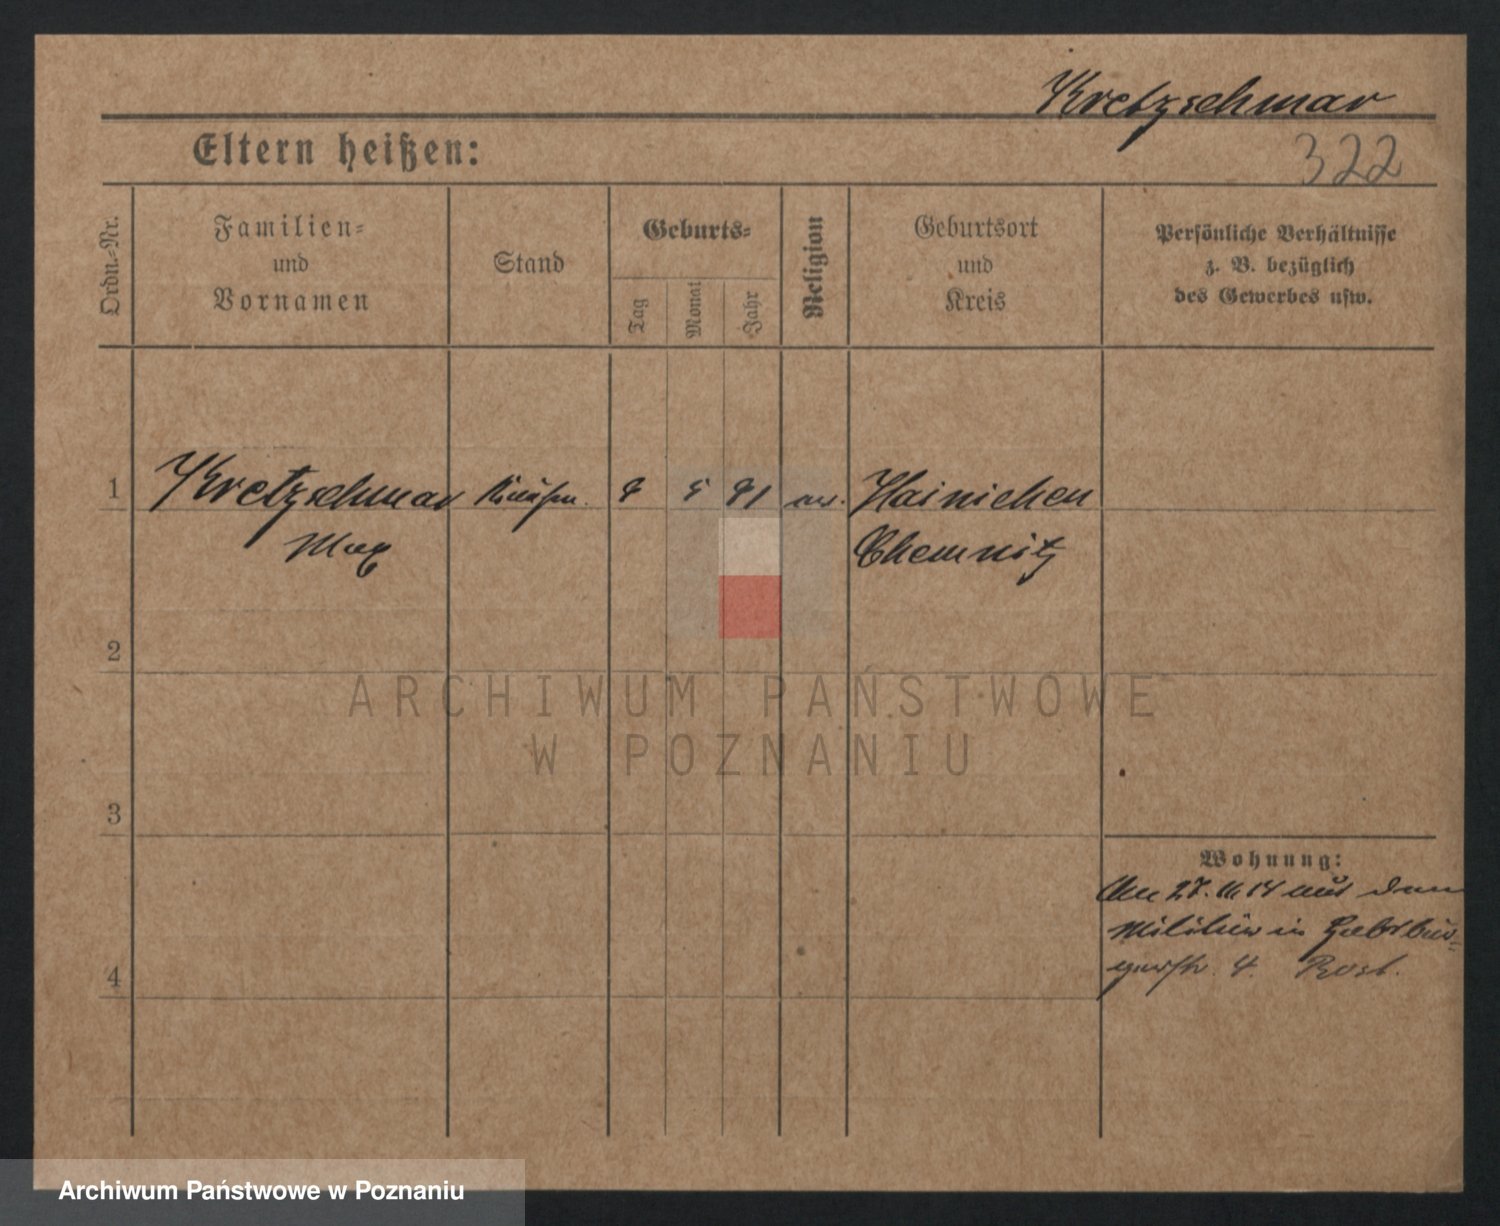 Kretzschmar
322
Eltern heißen:
Ordn.-Nr.
Familien-
und
Vornamen
Stand
Geburts-
Tag
Monat
Jahr
Religion
Geburtsort
und
Kreis
Persönliche Verhältnisse
z. B. bezüglich
des Gewerbes usw.
1 Kretzschmar Kaufm. 8 5 91 ev. Hainichen
Max Chemnitz
2
3
4
Wohnung:
Am 27. 11 14 aus dem
Militär in
4.
ARCHIWUM PAŃSTWOWE
W POZNANIU
Archiwum Państwowe w Poznaniu